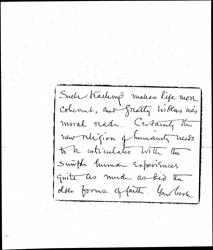 Such teaching makes life more
coherent, and greatly widens one's
moral reach. Certainly the
new religion of humanity needs
to be articulated with the
simple human experiences
quite as much as did the
older forms of faith. Your book